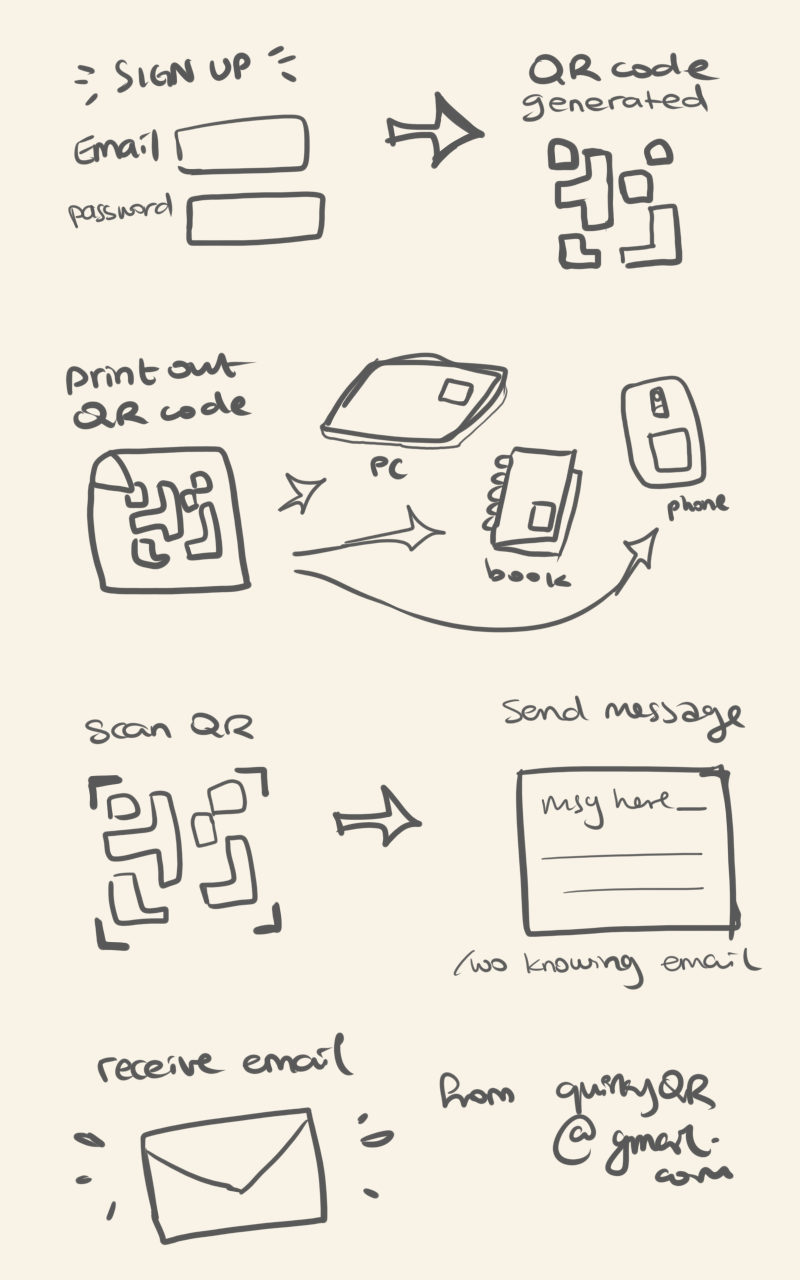 SIGN UP
Email
password
QR code
generated
print out
QR code
PC
book
phone
Scan QR
Send message
msg here
/wo knowing email
receive email
from quirkyQR
@gmail.
com